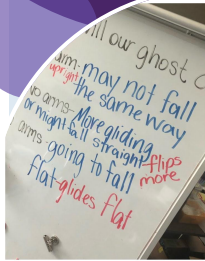 ill our ghost
arm- may not fall
upright the same way
no arms- More gliding
or might fall straight -flips
arms- going to fall more
flat- glides flat